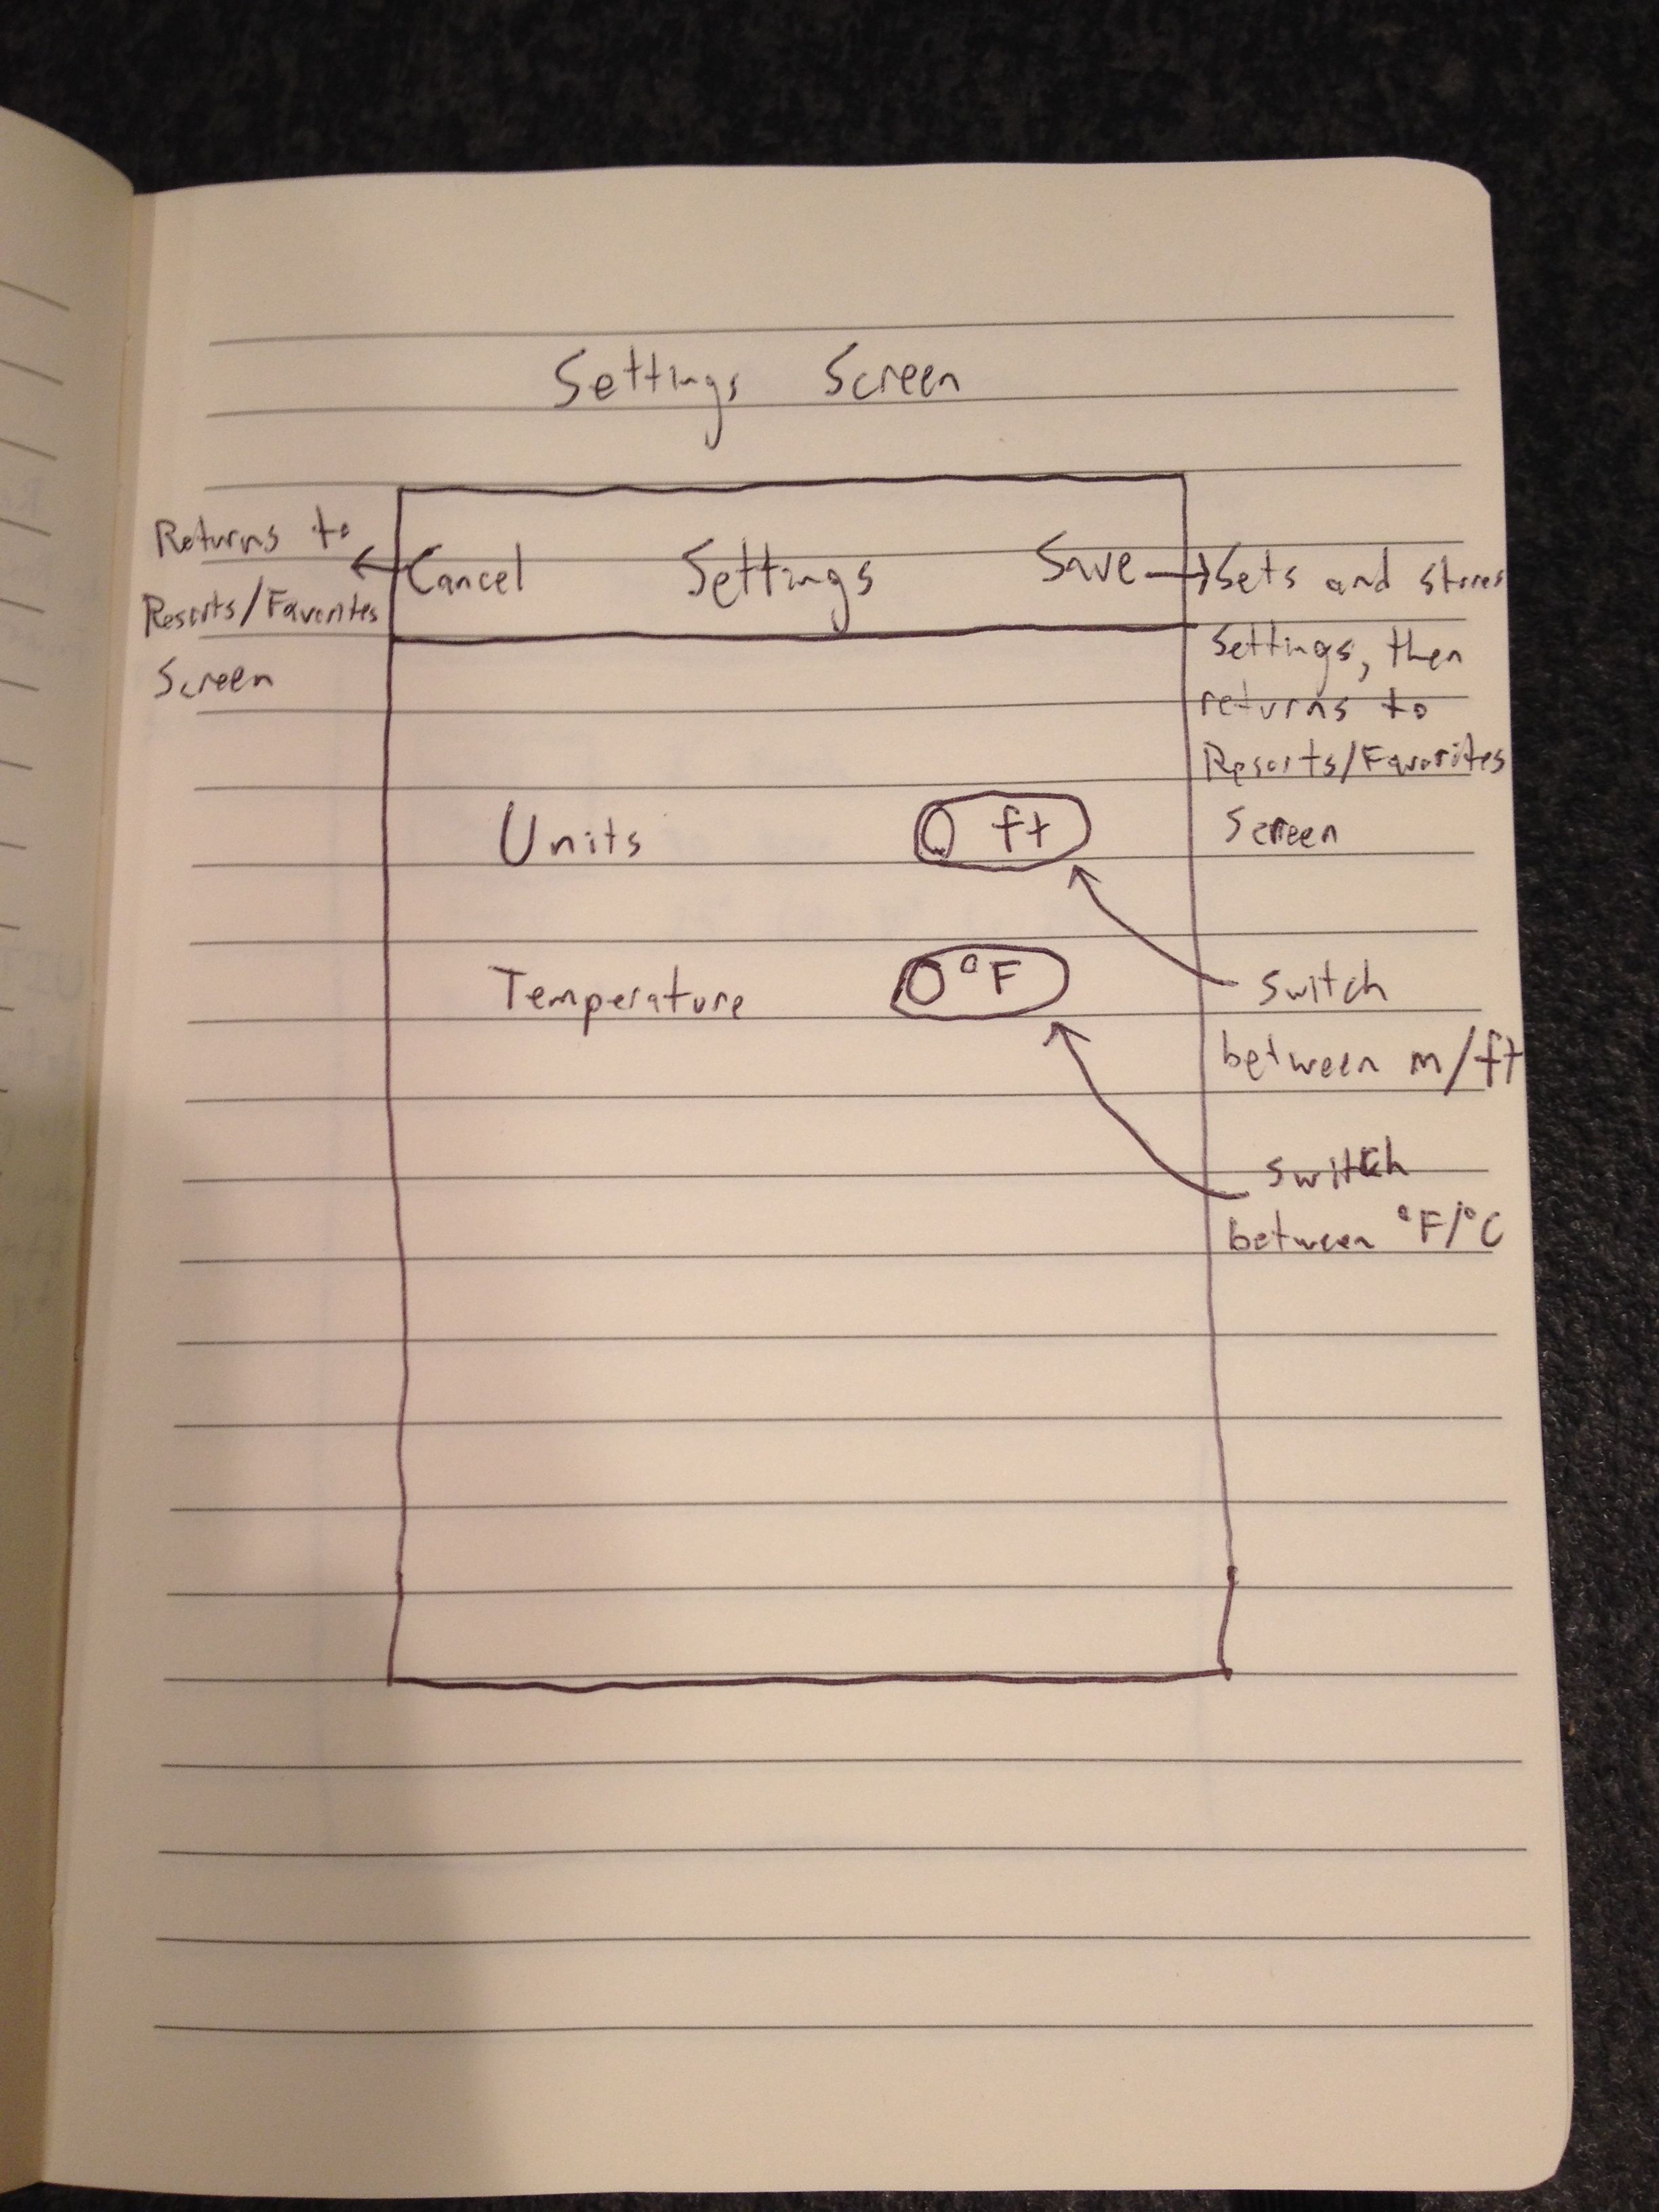 Settings Screen
Returns to
Resorts/Favorites
Screen
Cancel Settings Save
Sets and stores
Settings, then
returns to
Resorts/Favorites
Screen
Units ft
Temperature °F
switch
between m/ft
switch
between °F/°C